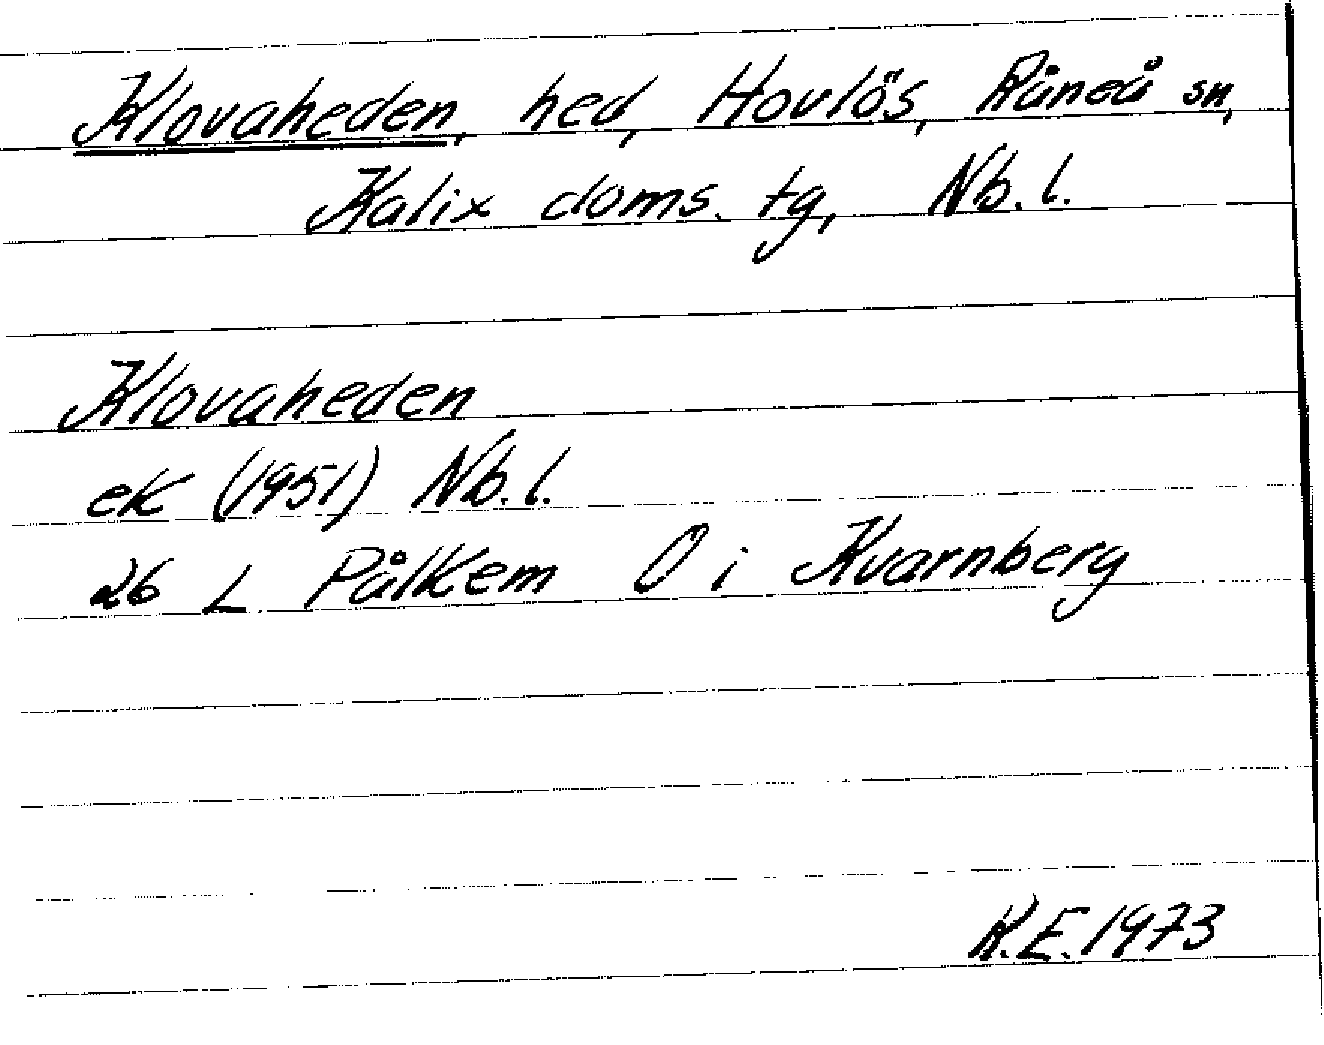 Klovaheden, hed, Hovlös, Råneå sn,
Kalix doms. tg, Nb. l.
Klovaheden
ek (1951) Nb. l.
26 L Pålkem O i Kvarnberg
K.E. 1973